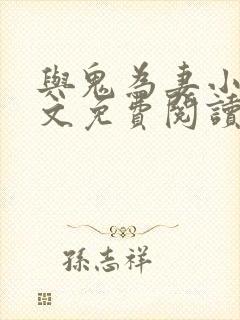 與鬼為妻小
文免費閱讀
孫志祥